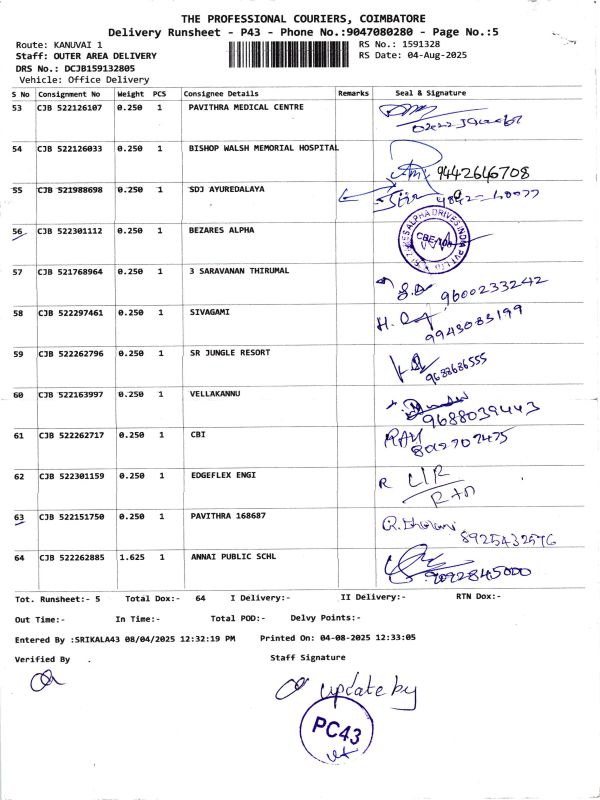 THE PROFESSIONAL COURIERS, COIMBATORE
Delivery Runsheet - P43 - Phone No.:9047080280 - Page No.:5
Route: KANUVAI 1
RS No.: 1591328
Staff: OUTER AREA DELIVERY
RS Date: 04-Aug-2025
DRS No.: DCJB159132805
Vehicle: Office Delivery
S No Consignment No Weight PCS Consignee Details Remarks Seal & Signature
53 CJB 522126107 0.250 1 PAVITHRA MEDICAL CENTRE
54 CJB 522126033 0.250 1 BISHOP WALSH MEMORIAL HOSPITAL 9442646708
55 CJB 521988698 0.250 1 SDJ AYUREDALAYA
56 CJB 522301112 0.250 1 BEZARES ALPHA
57 CJB 521768964 0.250 1 3 SARAVANAN THIRUMAL 9600233242
58 CJB 522297461 0.250 1 SIVAGAMI 9943083199
59 CJB 522262796 0.250 1 SR JUNGLE RESORT 9688686555
60 CJB 522163997 0.250 1 VELLAKANNU 9688039443
61 CJB 522262717 0.250 1 CBI
62 CJB 522301159 0.250 1 EDGEFLEX ENGI R
63 CJB 522151750 0.250 1 PAVITHRA 168687 8925432576
64 CJB 522262885 1.625 1 ANNAI PUBLIC SCHL 9092845000
Tot. Runsheet:- 5 Total Dox:- 64 I Delivery:- II Delivery:- RTN Dox:-
Out Time:- In Time:- Total POD:- Delvy Points:-
Entered By :SRIKALA43 08/04/2025 12:32:19 PM Printed On: 04-08-2025 12:33:05
Verified By . Staff Signature
update by
PC43